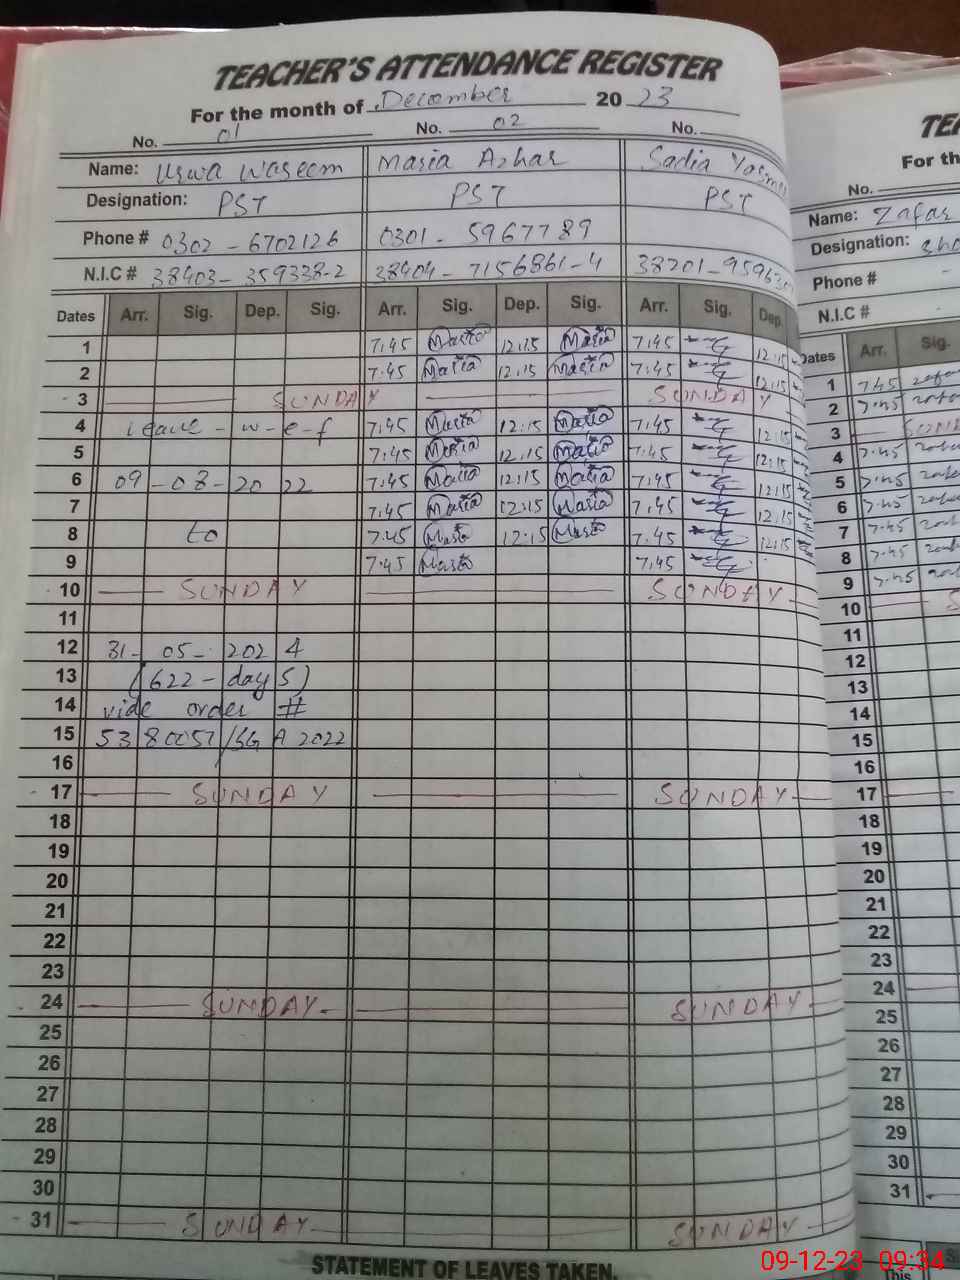 TEACHER'S ATTENDANCE REGISTER
For the month of December 2023
No. 01 No. 02 No.
Name: Urwa Waseem Maria Azhar Sadia
Designation: PST PST PST
Phone # 0302-6702126 0301-5967789
N.I.C # 38403-359338-2 38404-7156861-4 38201-
Dates Arr. Sig. Dep. Sig. Arr. Sig. Dep. Sig. Arr. Sig. Dep.
1 7.45 Maria 12:15 Maria 7.45 12:15
2 7.45 Maria 12.15 Maria 7.45 12:15
3 SUNDAY SUNDAY
4 leave - w-e-f 7.45 Maria 12:15 Maria 7.45 12:15
5 7.45 Maria 12:15 Maria 7.45 12:15
6 09-08-2022 7.45 Maria 12:15 Maria 7.45 12:15
7 7.45 Maria 12:15 Maria 7.45 12:15
8 to 7.45 Maria 12:15 Maria 7.45 12:15
9 7.45 Maria 7.45
10 SUNDAY SUNDAY
11
12 31-05-2024
13 (622-days)
14 vide order #
15 5380057/SG A 2022
16
17 SUNDAY SUNDAY
18
19
20
21
22
23
24 SUNDAY SUNDAY
25
26
27
28
29
30
31 SUNDAY SUNDAY
STATEMENT OF LEAVES TAKEN.
For th
No.
Name: Zafar
Designation:
Phone #
N.I.C #
Dates Arr. Sig.
1 7.45
2 7.45
3
4 7.45
5 7.45
6 7.45
7 7.45
8 7.45
9 7.45
10
11
12
13
14
15
16
17
18
19
20
21
22
23
24
25
26
27
28
29
30
31
09-12-23 09:34